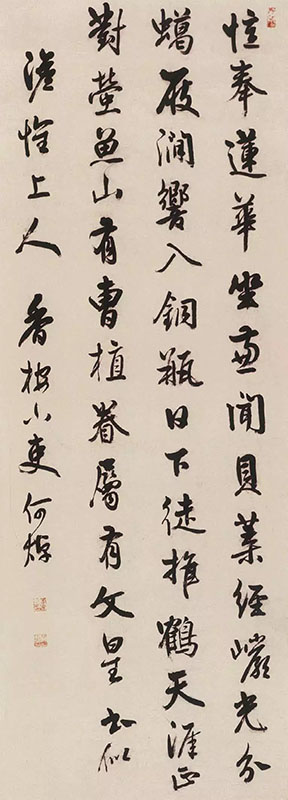 憶奉蓮華坐兼聞貝葉經巖光分
蠟屐澗響入銅瓶日下徒推鶴天涯正
對螢魚山有曹植眷屬有文星書似
澹惟上人 香桉小吏何焯